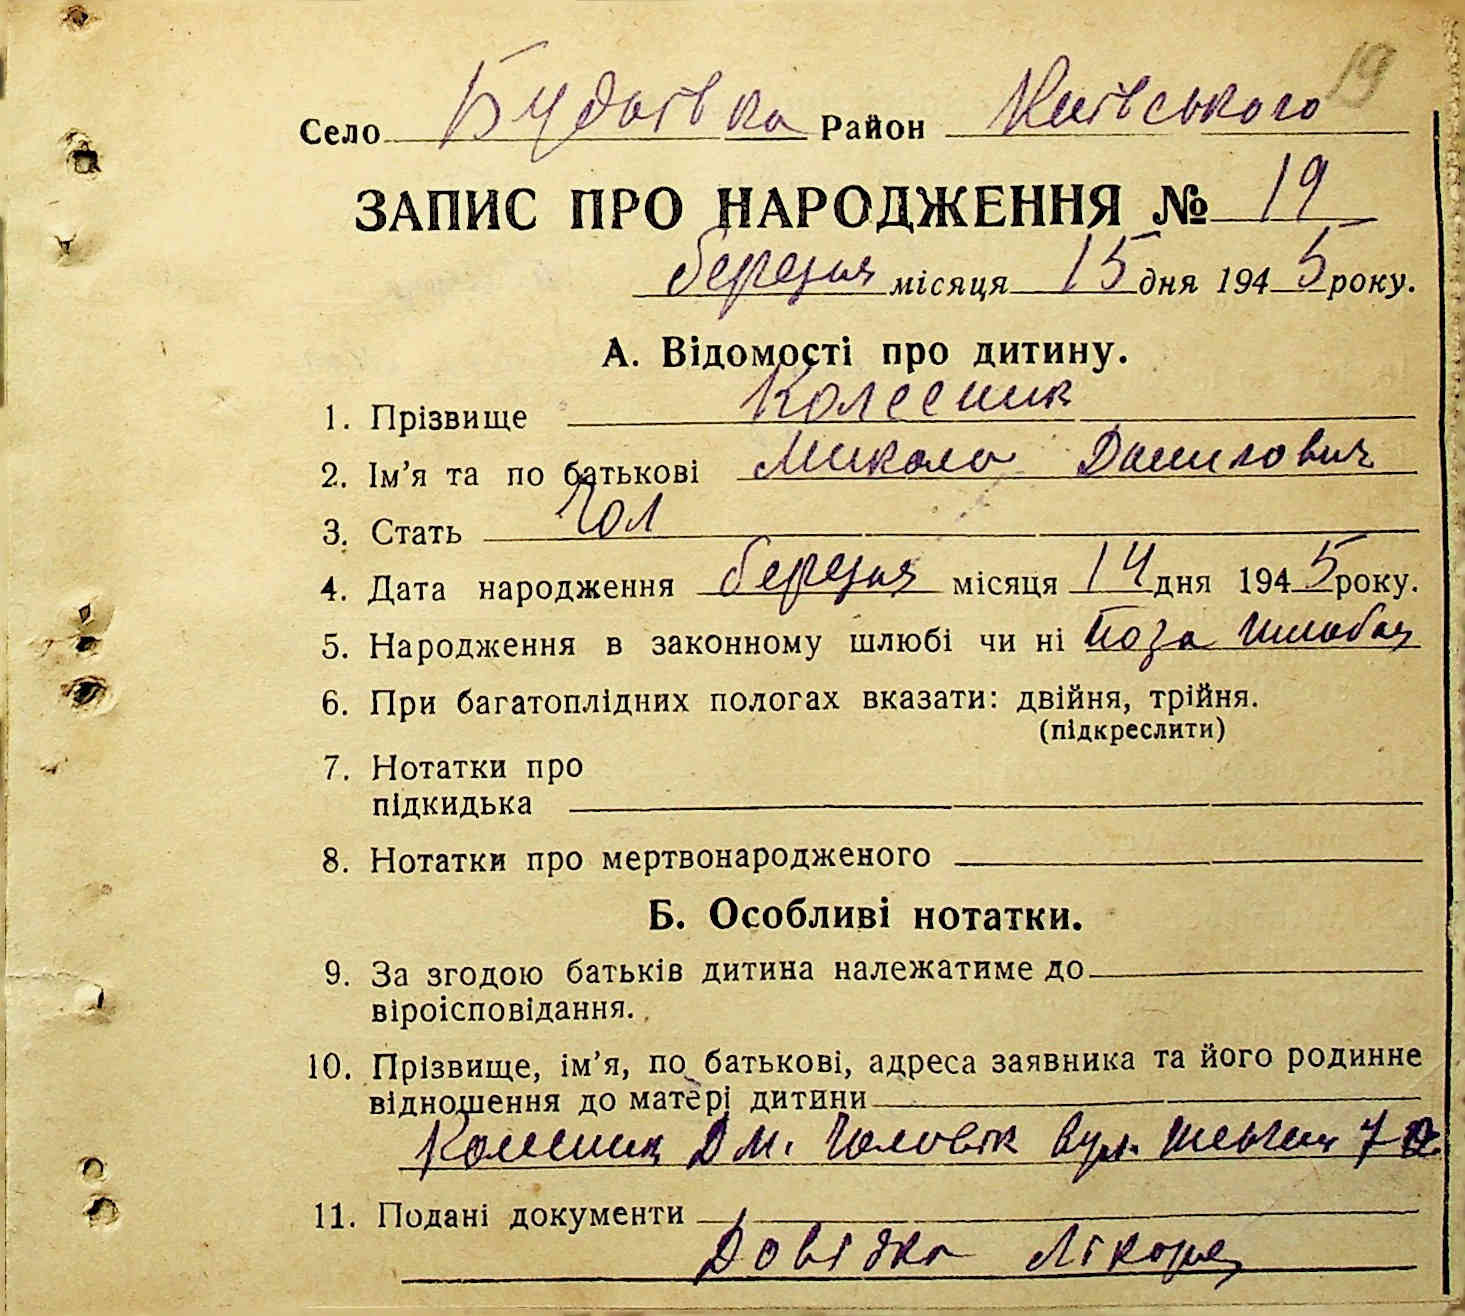 19
Село Будаївка Район Київського
ЗАПИС ПРО НАРОДЖЕННЯ № 19
березня місяця 15 дня 1945 року.
А. Відомості про дитину.
1. Прізвище Колесник
2. Ім'я та по батькові Микола Данилович
3. Стать Чол
4. Дата народження березня місяця 14 дня 1945 року.
5. Народження в законному шлюбі чи ні поза шлюбом
6. При багатоплідних пологах вказати: двійня, трійня.
(підкреслити)
7. Нотатки про
підкидька
8. Нотатки про мертвонародженого
Б. Особливі нотатки.
9. За згодою батьків дитина належатиме до
віроісповідання.
10. Прізвище, ім'я, по батькові, адреса заявника та його родинне
відношення до матері дитини
Колесник Д М. Чоловік вул.
11. Подані документи
Довідка лікаря